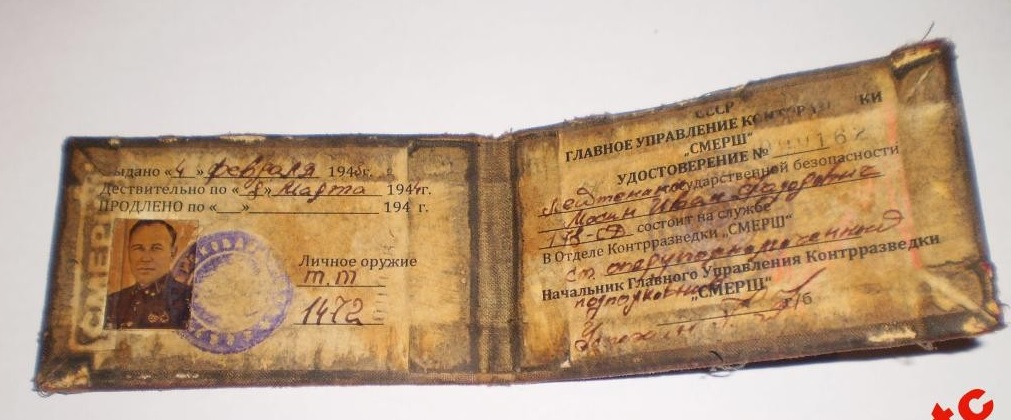 ыдано «4» февраля 194 г.
Дествительно по «8» марта 1944г.
ПРОДЛЕНО по «__»____________ 194 г.
СМЕР
Личное оружие
Т.Т
1472
СССР
ГЛАВНОЕ УПРАВЛЕНИЕ КОНТОРА КИ
„СМЕРШ"
УДОСТОВЕРЕНИЕ № 00162
Лейтенант государственной безопасности
Мосин Иван
состоит на службе
В Отделе Контрразведки „СМЕРШ"
ст. оперуполномоченный
Начальник Главного Управления Контрразведки
„СМЕРШ"
подполковник
з/б
тс